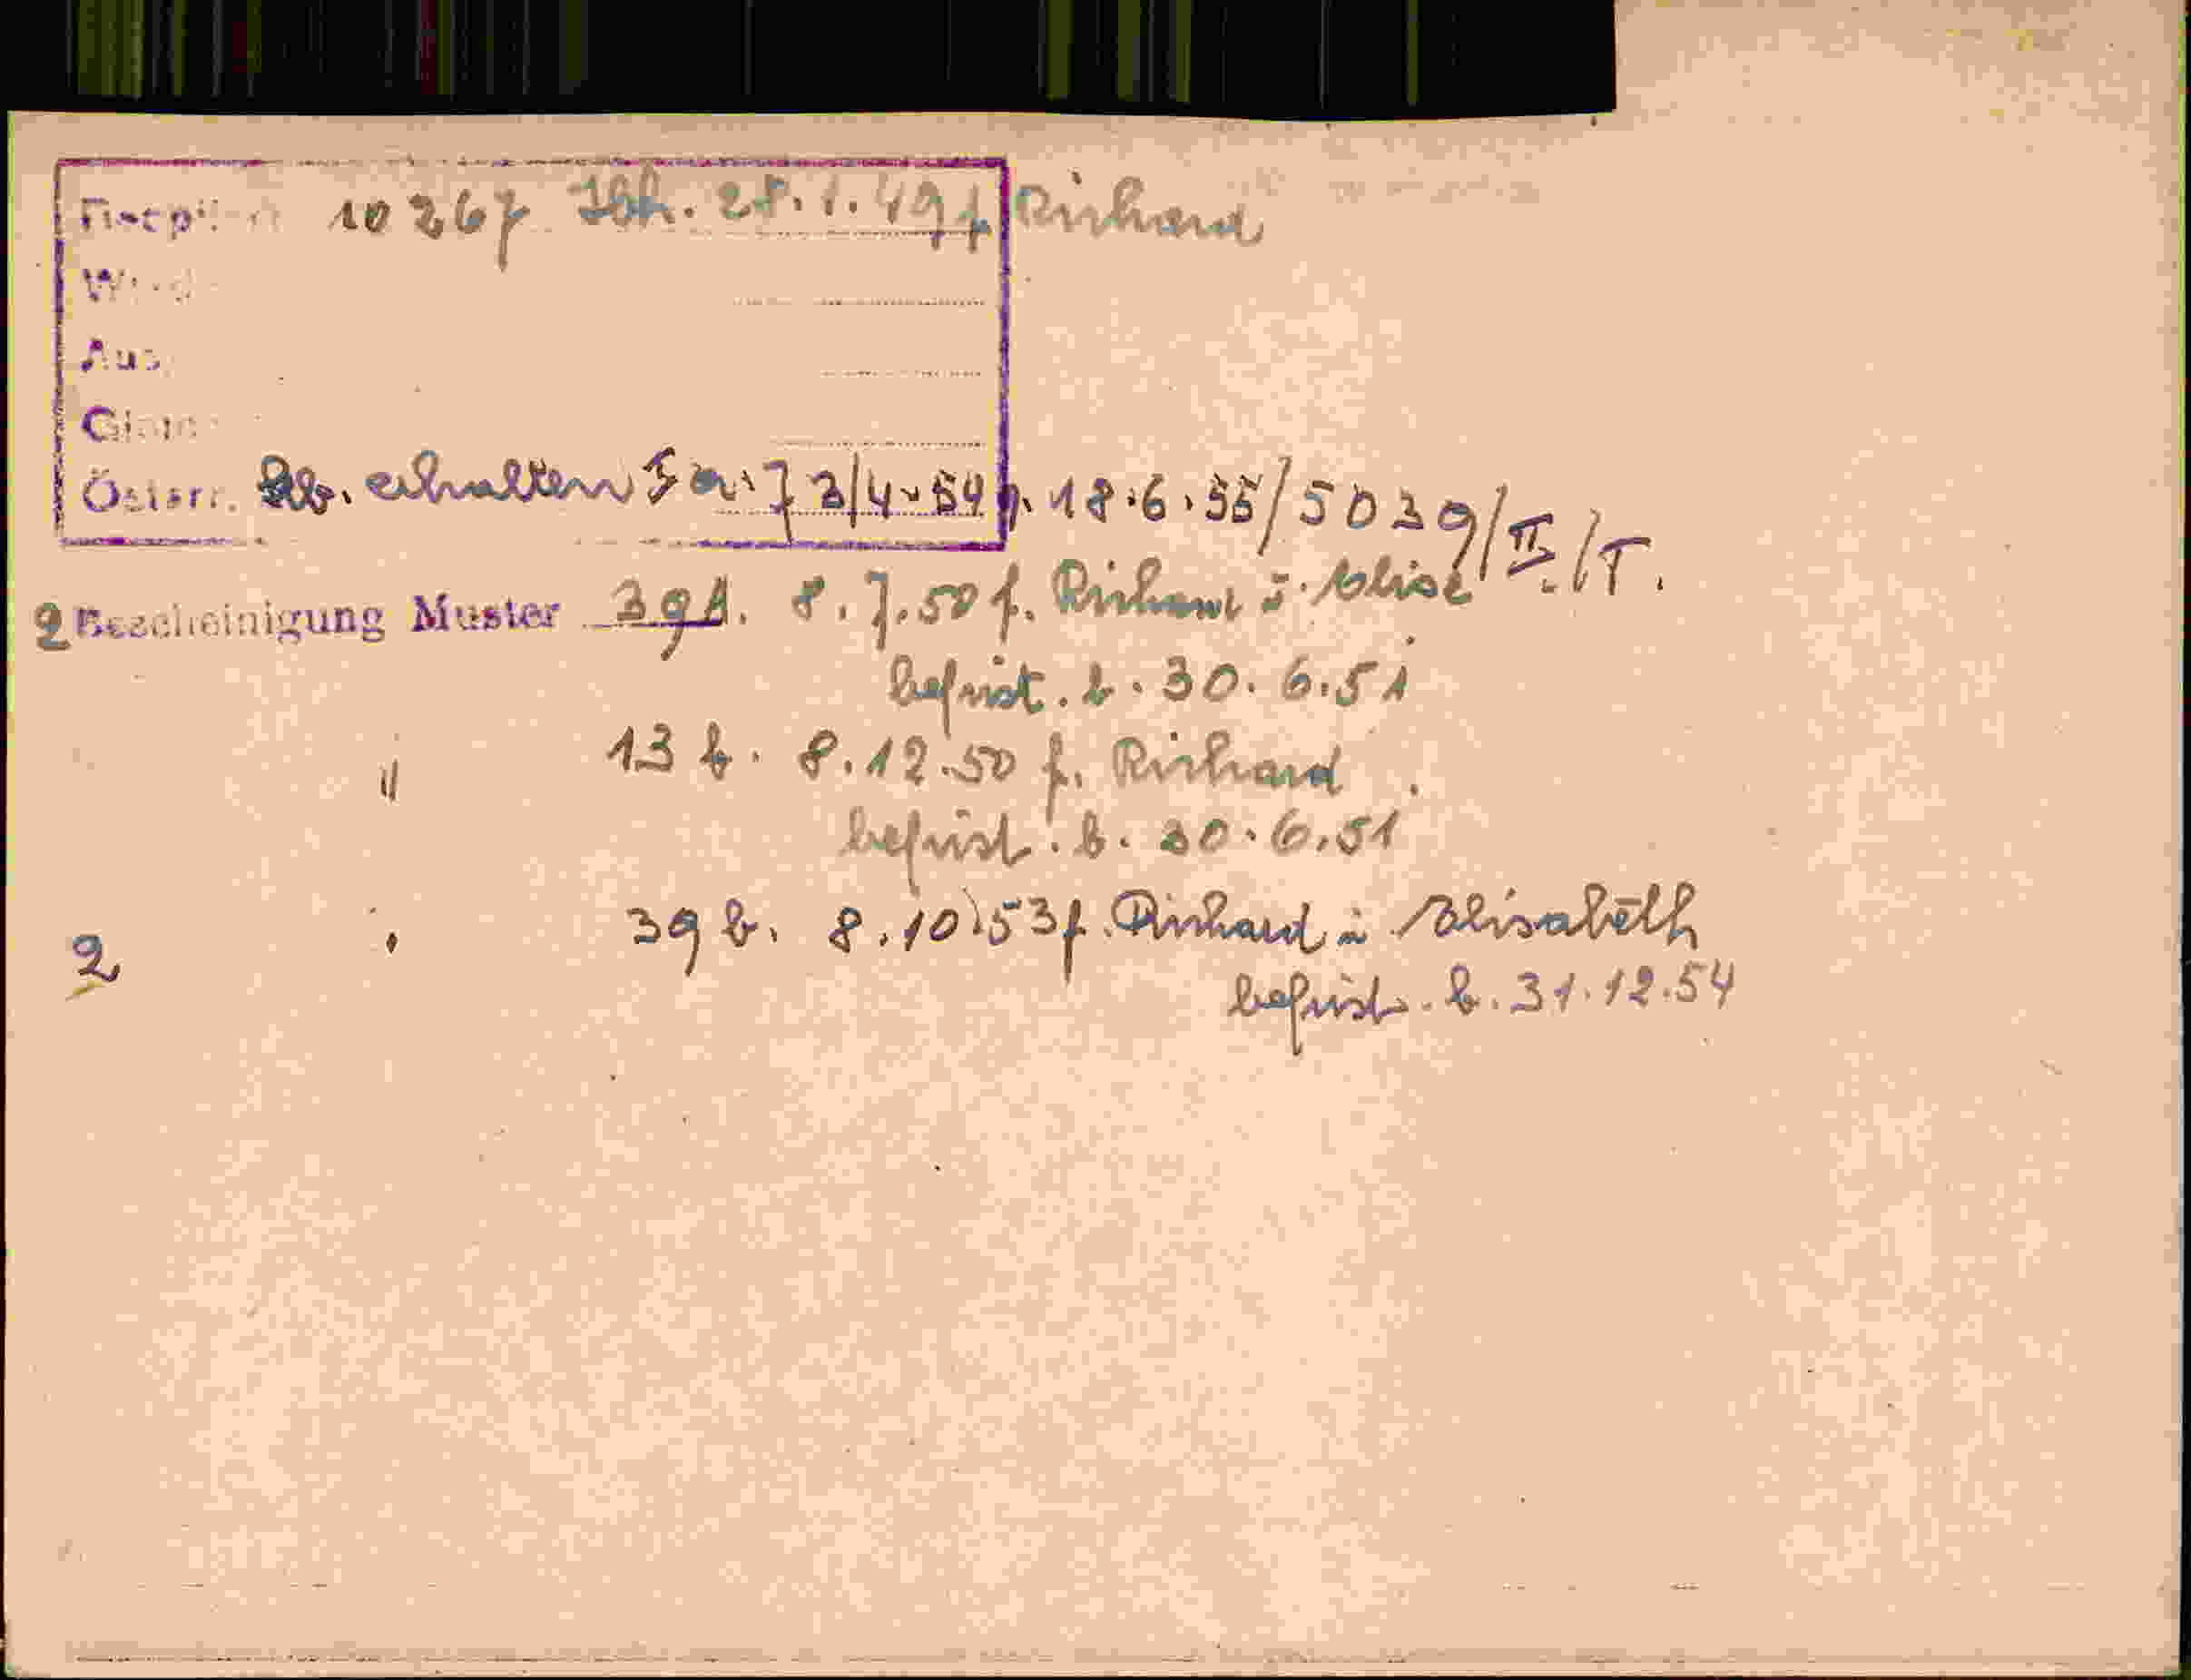 10267 Ibk. 28.1.49 f. Richard
Aus
Österr. erhalten 3/4.54 p. 18.6.55/5039/II./T.
2 Bescheinigung Muster 39A. 8.7.50 f. Richard u. Elise
befrist. b. 30.6.51
" 13 b. 8.12.50 f. Richard
befrist. b. 30.6.51
2 " 39 b. 8.10.53 f. Richard u. Elisabeth
befrist. b. 31.12.54